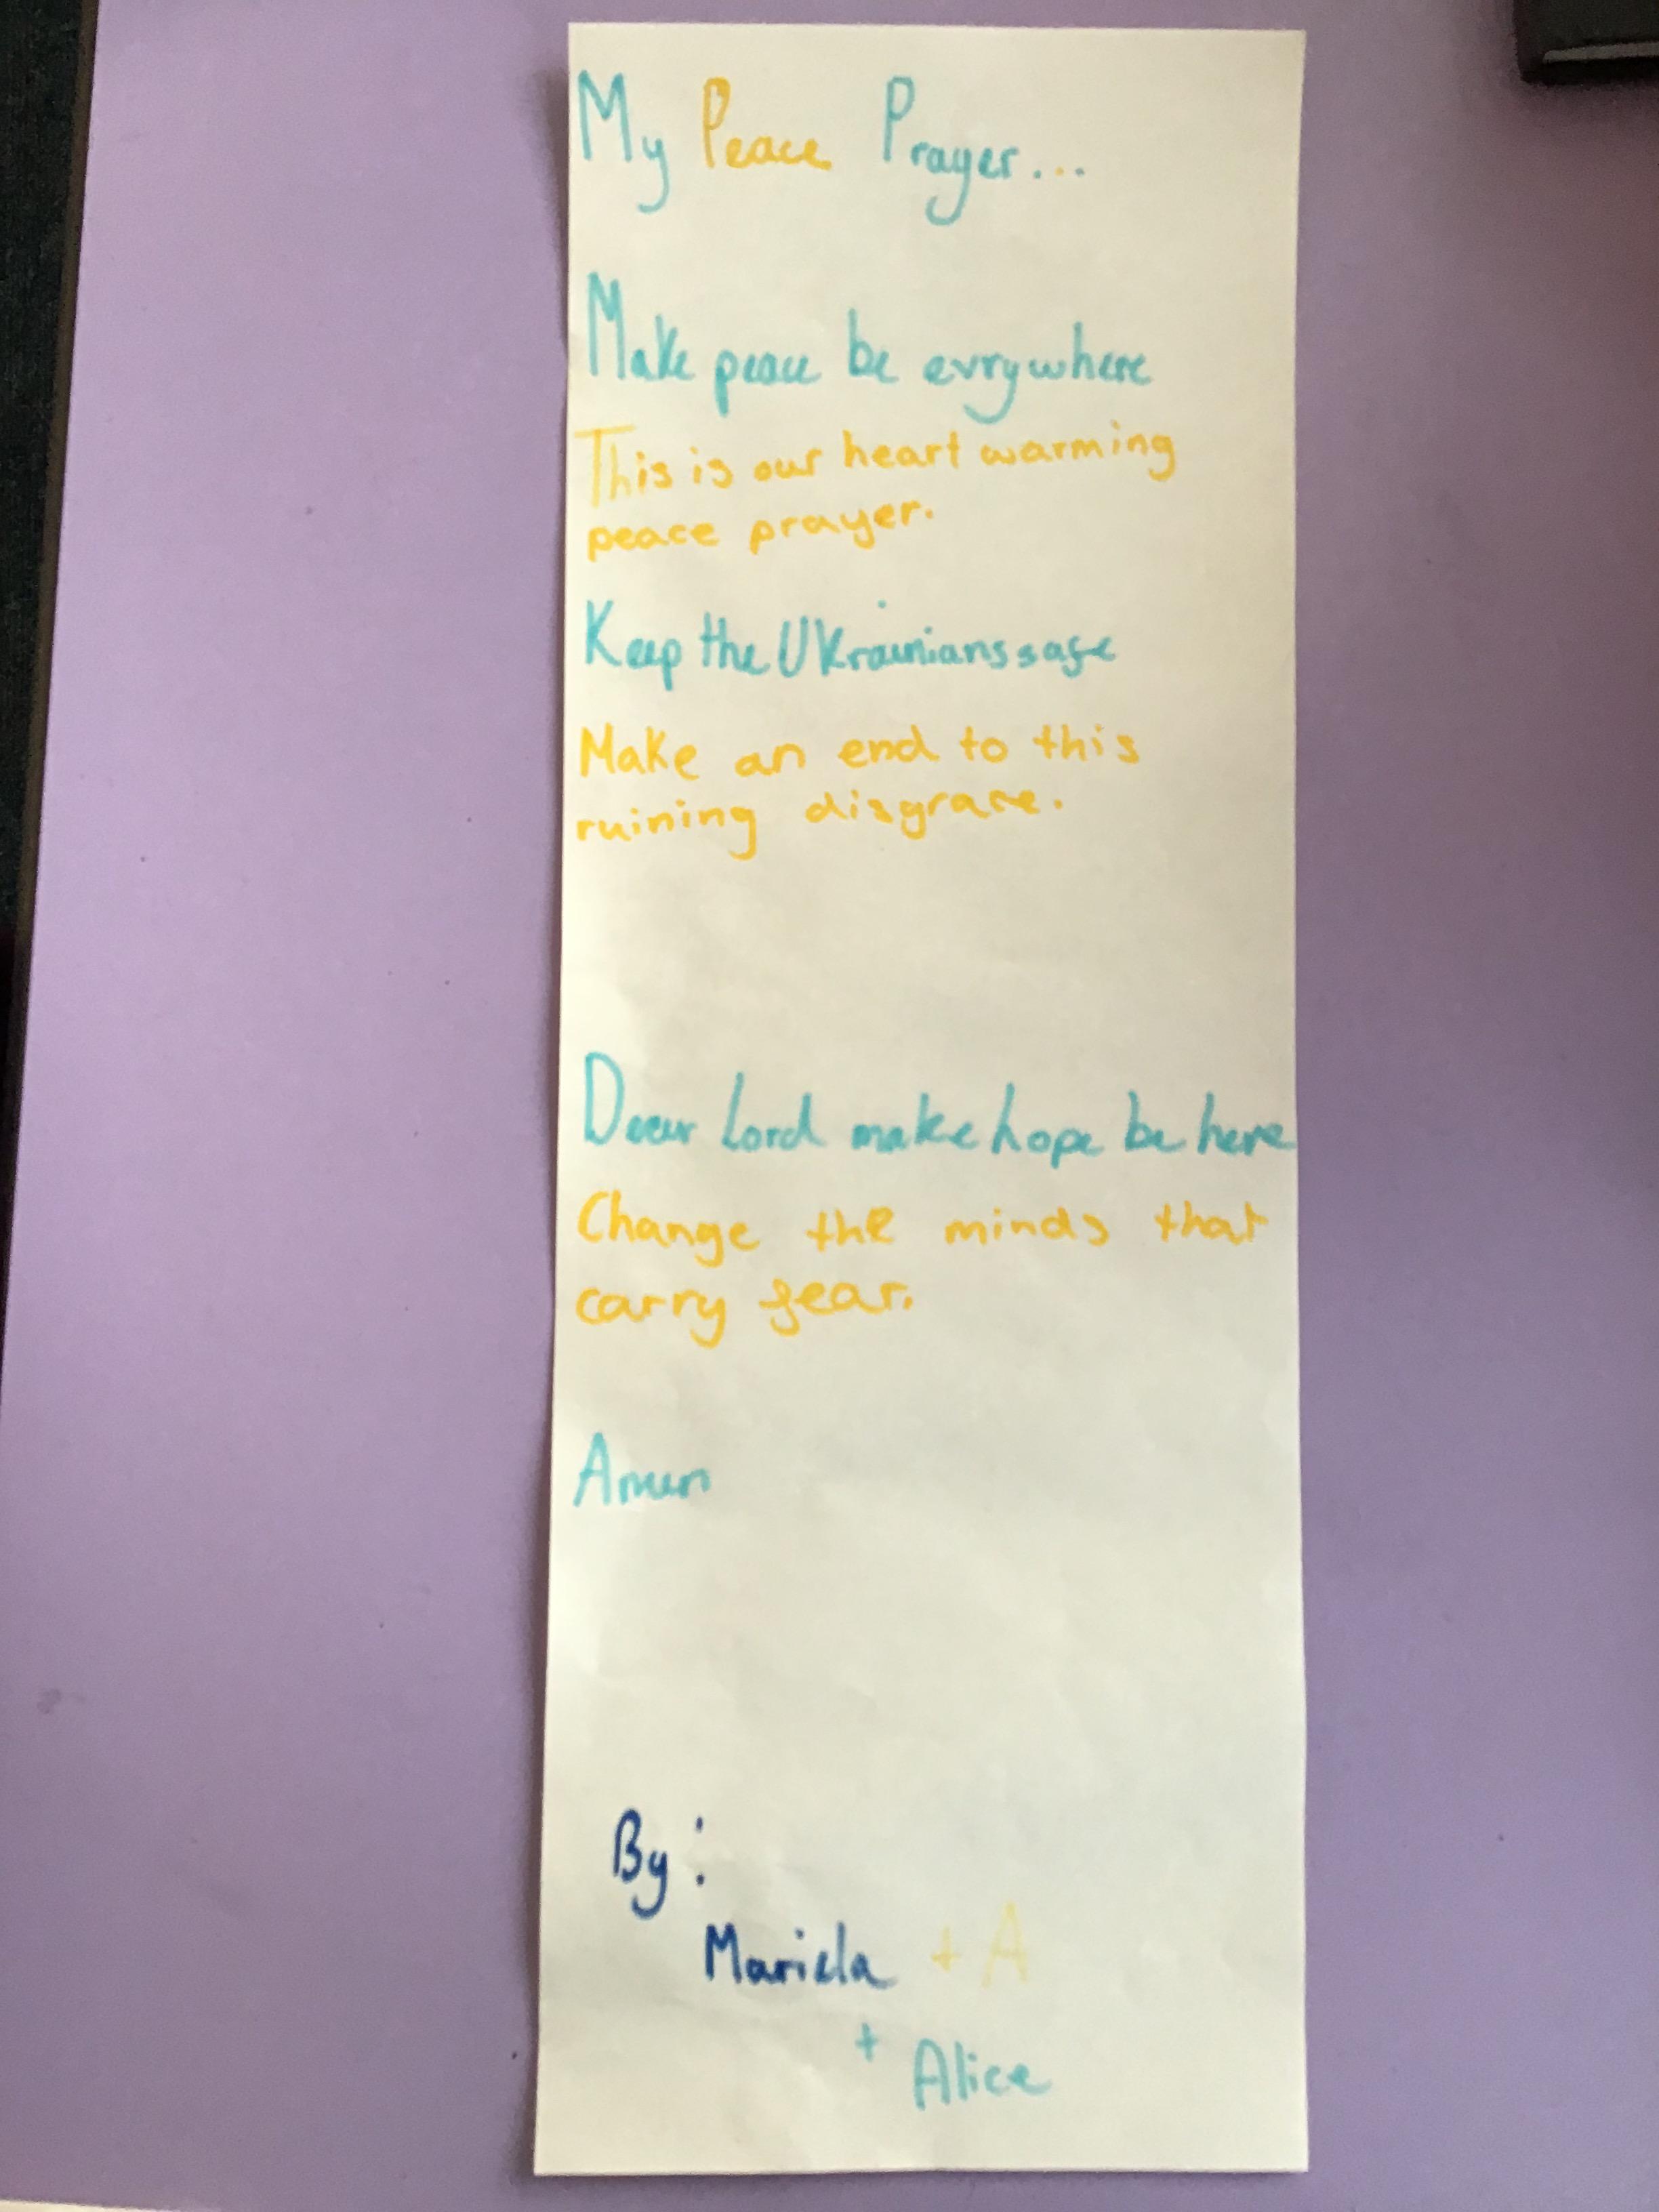 My Peace Prayer...
Make peace be evrywhere
This is our heart warming
peace prayer.
Keep the UKrainians safe
Make an end to this
ruining disgrace.
Dear Lord make hope be here
Change the minds that
carry fear.
Amen
By:
Mariela + A
+ Alice